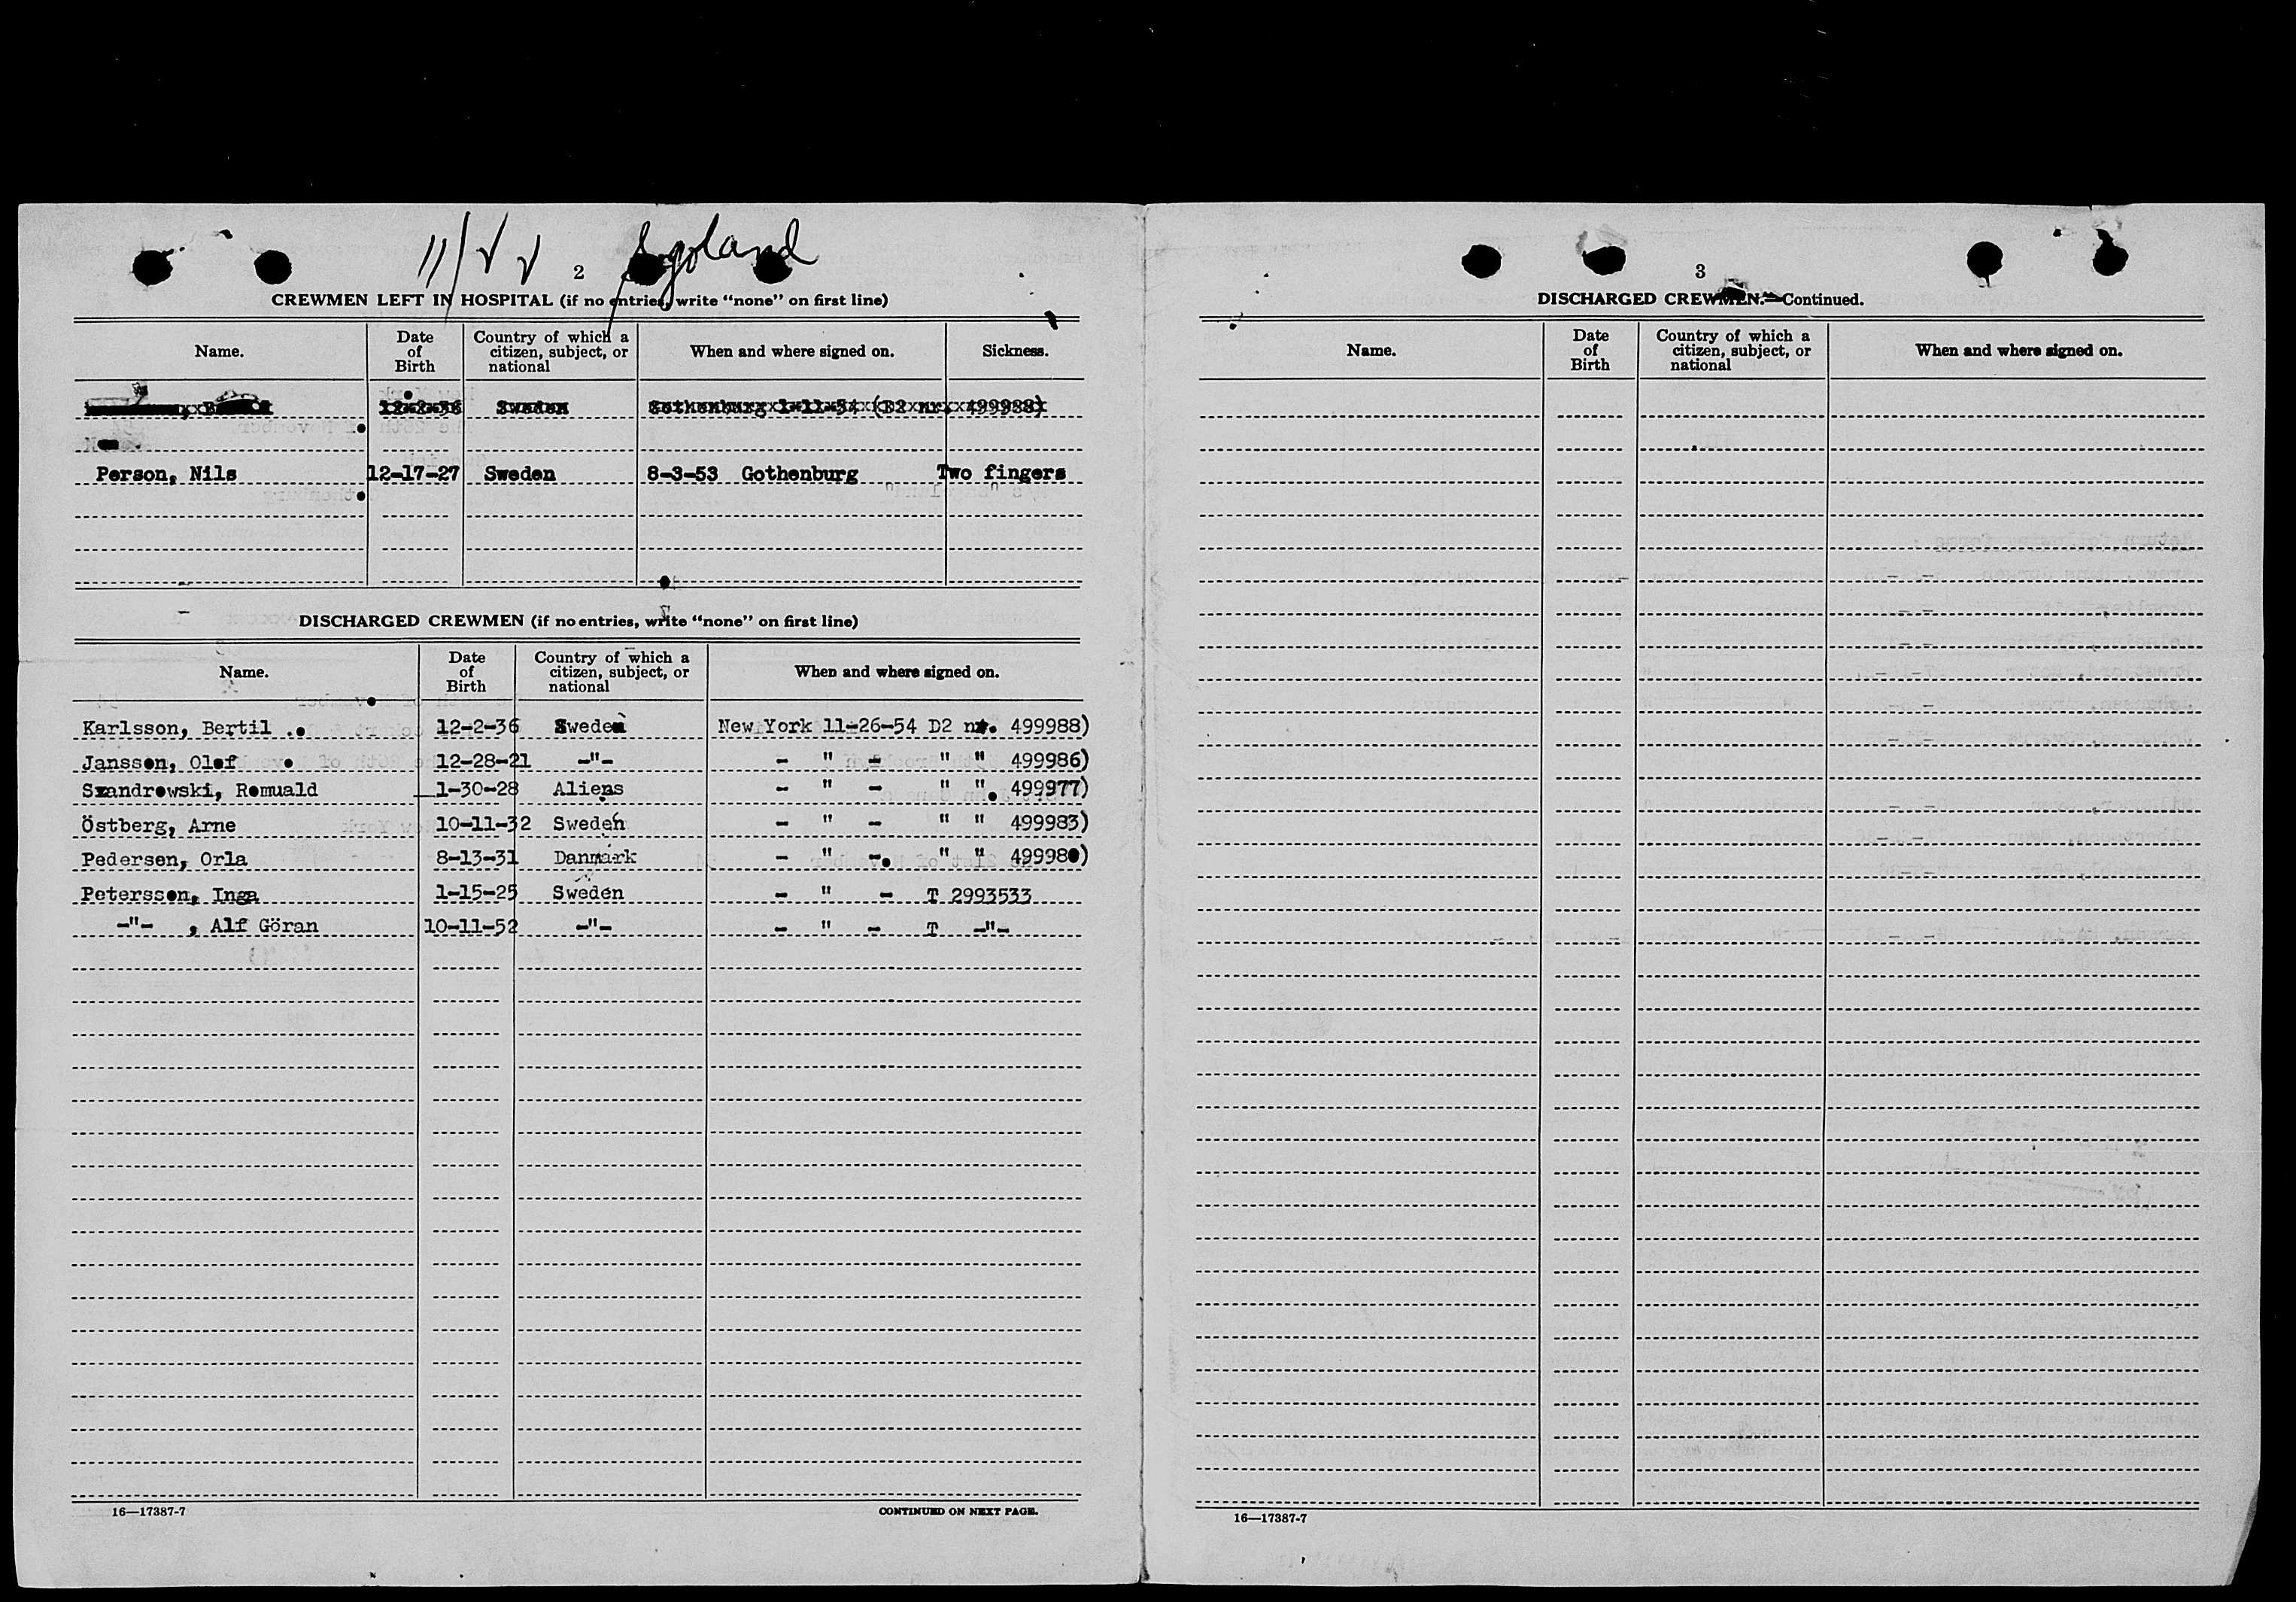 2
CREWMEN LEFT IN HOSPITAL (if no entries, write “none” on first line)
Name. Date of Birth Country of which a citizen, subject, or national When and where signed on. Sickness.
12-2-36 Sweden Gothenburg 1-11-54 (D2 nr. 499988)
Person, Nils 12-17-27 Sweden 8-3-53 Gothenburg Two fingers
DISCHARGED CREWMEN (if no entries, write “none” on first line)
Name. Date of Birth Country of which a citizen, subject, or national When and where signed on.
Karlsson, Bertil 12-2-36 Sweden New York 11-26-54 D2 nr. 499988)
Jansson, Olof 12-28-21 -"- - " - " " 499986)
Szandrowski, Romuald 1-30-28 Aliens - " - " ". 499977)
Östberg, Arne 10-11-32 Sweden - " - " " 499983)
Pedersen, Orla 8-13-31 Danmark - " - " " 499980)
Petersson, Inga 1-15-25 Sweden - " - T 2993533
-"- , Alf Göran 10-11-52 -"- - " - T -"-
16—17387-7 CONTINUED ON NEXT PAGE.
3
DISCHARGED CREWMEN.—Continued.
Name. Date of Birth Country of which a citizen, subject, or national When and where signed on.
16—17387-7